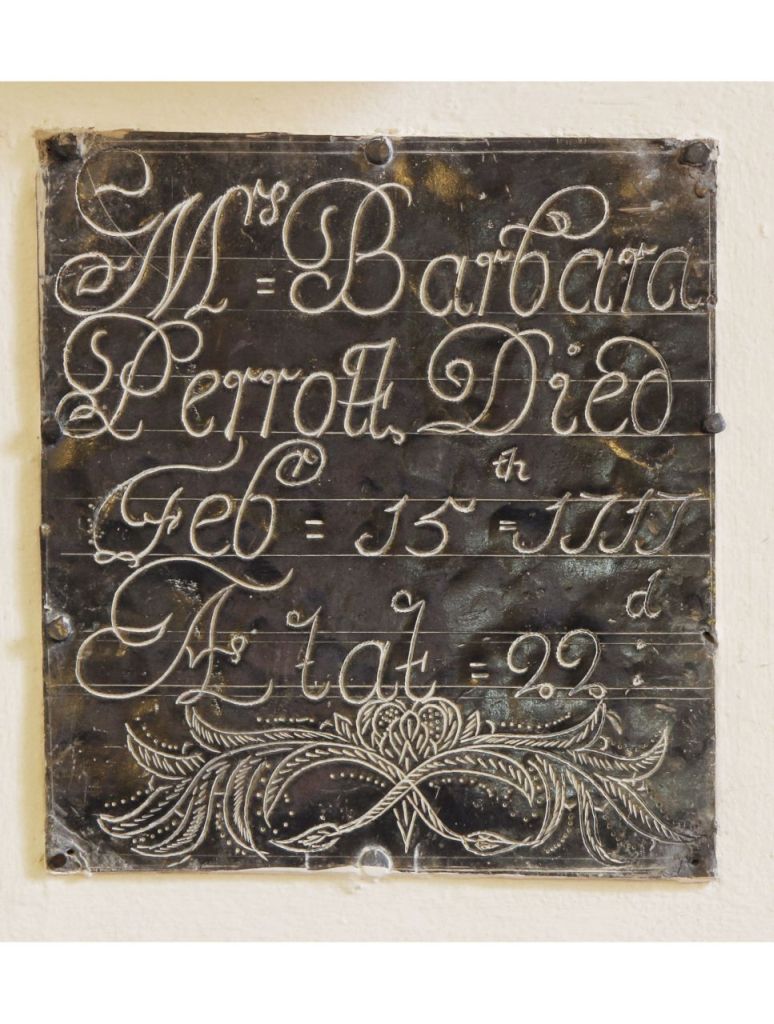 Mrs = Barbara
Perrott, Died
Febr = 15th = 1717
Ætat = 22d